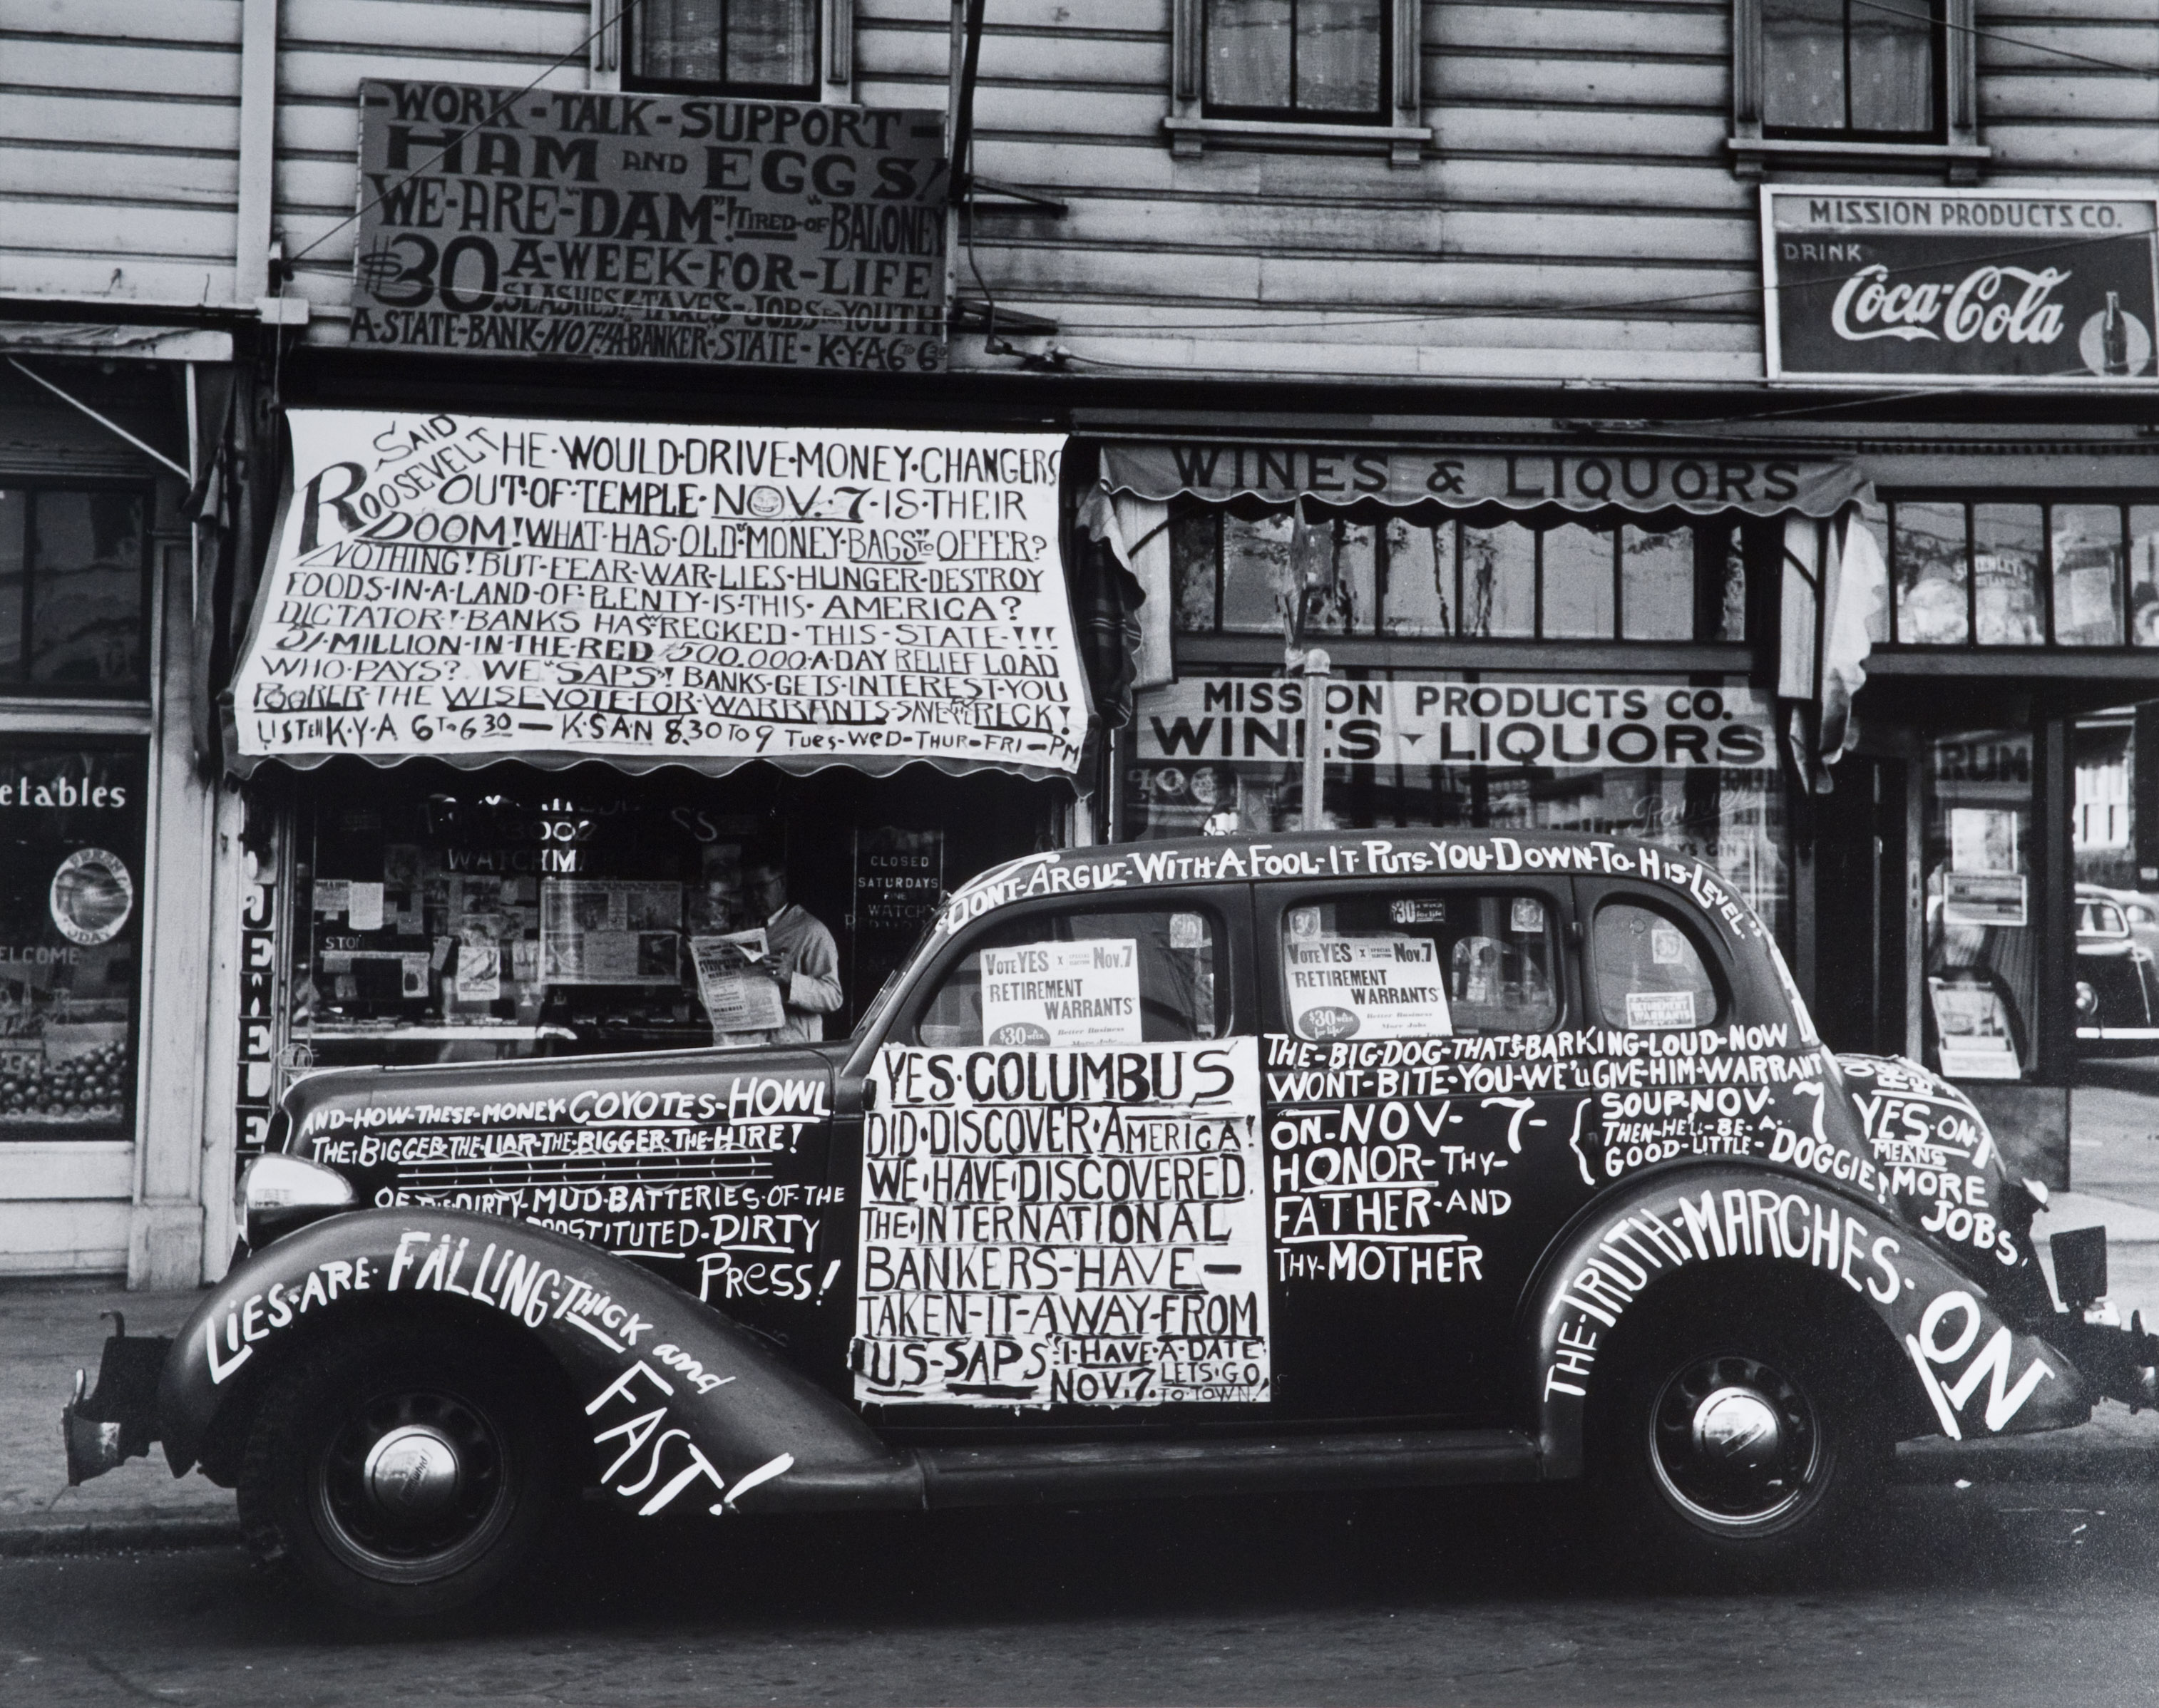 -WORK-TALK-SUPPORT-
HAM AND EGGS!
WE-ARE-"DAM"! TIRED-OF "BALONEY
$30 A-WEEK-FOR-LIFE
SLASHES-TAXES-JOBS-YOUTH
A-STATE-BANK-NOT-A-BANKER-STATE-K-Y-A 6 TO 6 30
MISSION PRODUCTS CO.
DRINK
Coca-Cola
SAID
ROOSEVELT HE·WOULD·DRIVE·MONEY·CHANGERS
OUT·OF·TEMPLE·NOV. 7·IS·THEIR
DOOM! WHAT·HAS·OLD·"MONEY·BAGS" TO OFFER?
NOTHING! BUT-FEAR-WAR-LIES-HUNGER-DESTROY
FOODS-IN-A-LAND-OF-PLENTY-IS-THIS-AMERICA?
DICTATOR! BANKS HAS WRECKED-THIS-STATE-!!!
MILLION-IN-THE-RED $500.000-A-DAY RELIEF LOAD
WHO·PAYS? WE "SAPS"! BANKS-GETS-INTEREST-YOU
POORER-THE WISE-VOTE-FOR-WARRANTS-SAVE WRECK!
LISTEN K·Y·A 6 TO 6 30 — K·S·A·N 8.30 TO 9 TUES-WED-THUR-FRI-PM
WINES & LIQUORS
MISSION PRODUCTS CO.
WINES LIQUORS
RUM
etables
ELCOME
JEWELE
WATCHM
STO
CLOSED
SATURDAYS
FINE
WATCH
DONT-ARGUE-WITH-A-FOOL-IT-PUTS-YOU-DOWN-TO-HIS-LEVEL"
VOTE YES X SPECIAL ELECTION NOV. 7
"RETIREMENT
WARRANTS"
$30 a wk. for life
Better Business
More Jobs
VOTE YES X SPECIAL ELECTION NOV. 7
"RETIREMENT
WARRANTS"
$30 a wk. for life
Better Business
More Jobs
$30
AND-HOW-THESE-MONEY-COYOTES-HOWL
THE-BIGGER-THE-LIAR-THE-BIGGER-THE-HIRE!
OF THE-DIRTY-MUD-BATTERIES-OF-THE
PROSTITUTED-DIRTY
PRESS!
LIES-ARE-FALLING-THICK and
FAST!
YES·COLUMBUS
DID·DISCOVER·AMERICA!
WE·HAVE·DISCOVERED
THE·INTERNATIONAL
BANKERS-HAVE-
TAKEN-IT-AWAY-FROM
US-SAPS "I-HAVE-A-DATE
NOV. 7. LETS-GO
TO TOWN!
THE-BIG-DOG-THAT'S-BARKING-LOUD-NOW
WONT-BITE-YOU-WE'LL GIVE-HIM-WARRANT
SOUP-NOV. 7
ON-NOV-7-
THEN-HE'LL-BE-A-
GOOD-LITTLE-DOGGIE!
HONOR-THY-
FATHER-AND
THY-MOTHER
YES-ON-1
MEANS
MORE
JOBS.
THE-TRUTH-MARCHES-ON